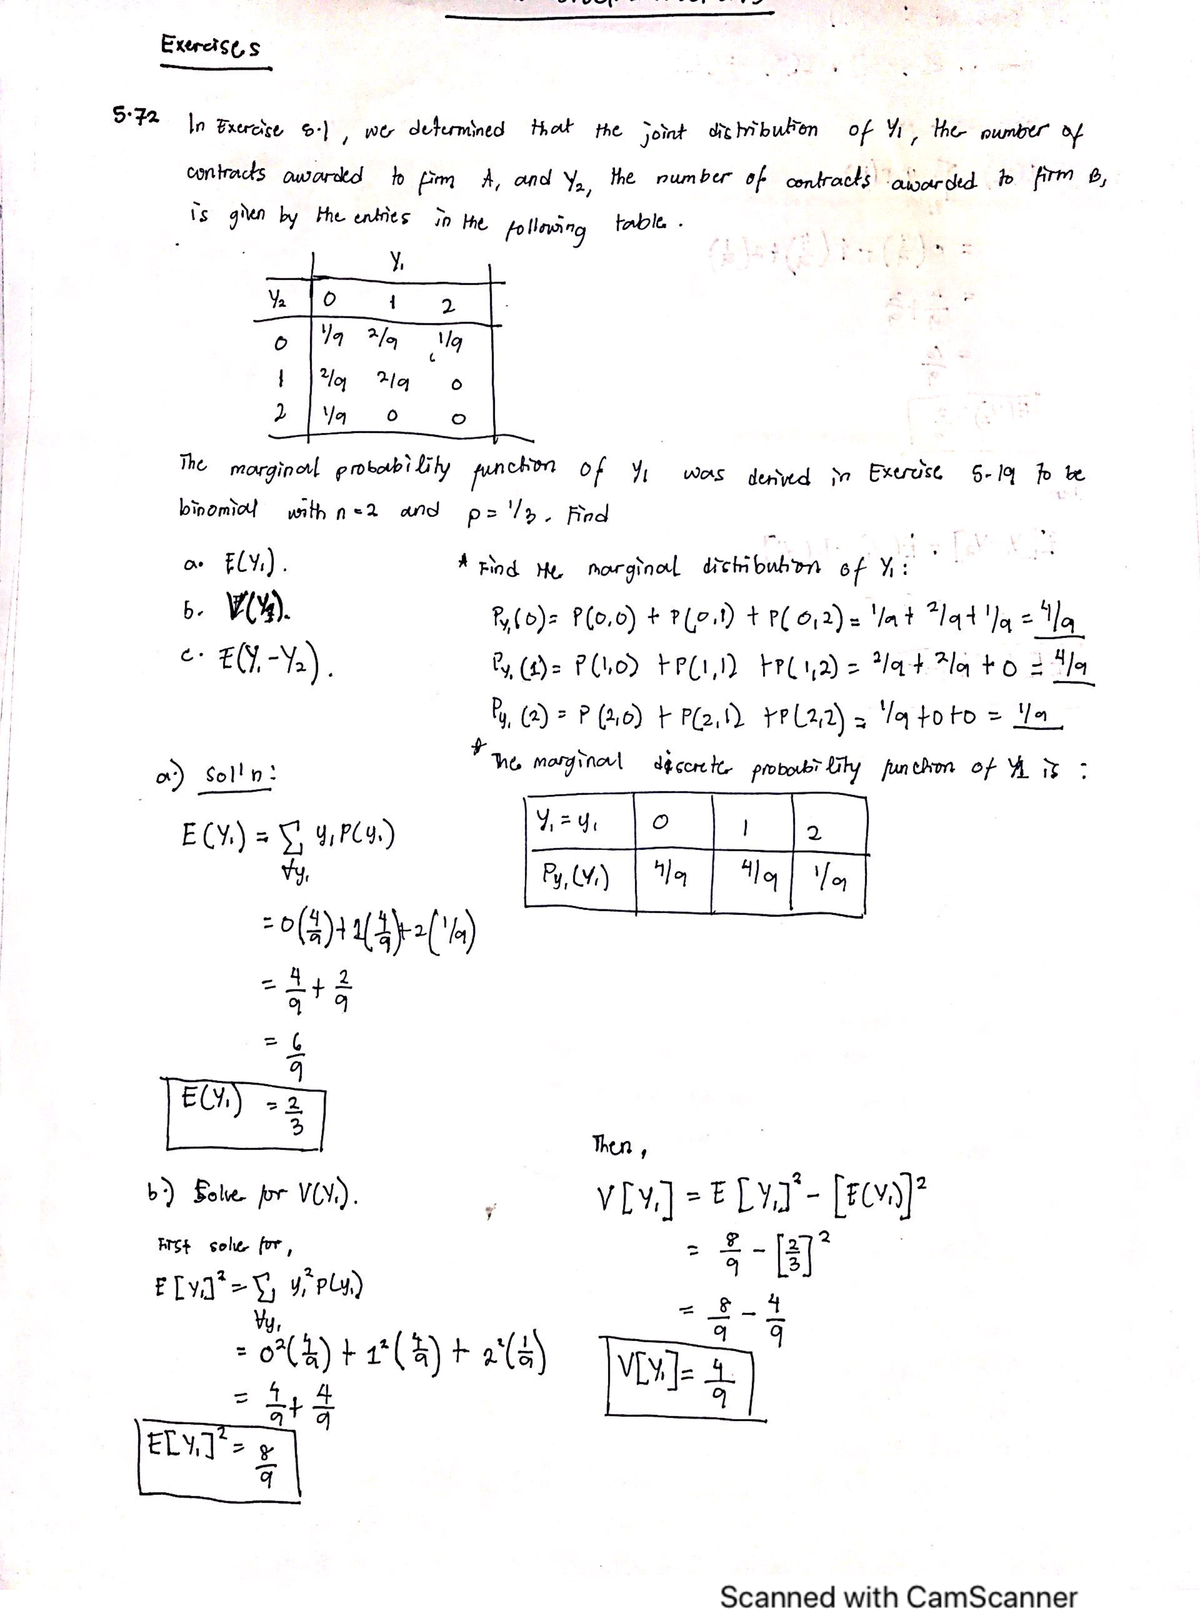 Exercises
5.72 In Exercise 5.1, we determined that the joint distribution of Y₁, the number of
contracts awarded to firm A, and Y₂, the number of contracts awarded to firm B,
is given by the entries in the following table.
Y₁
Y₂ 0 1 2
0 1/9 2/9 1/9
1 2/9 2/9 0
2 1/9 0 0
The marginal probability function of Y₁ was derived in Exercise 5.19 to be
binomial with n=2 and p=1/3. Find
a. E(Y₁).
b. V(Y₁).
c. E(Y₁-Y₂).
* Find the marginal distribution of Y₁:
Py₁(0) = P(0,0) + P(0,1) + P(0,2) = 1/9 + 2/9 + 1/9 = 4/9
Py₁(1) = P(1,0) + P(1,1) + P(1,2) = 2/9 + 2/9 + 0 = 4/9
Py₁(2) = P(2,0) + P(2,1) + P(2,2) = 1/9 + 0 + 0 = 1/9
* The marginal discrete probability function of Y1 is :
Y₁ = y₁ 0 1 2
Py₁(Y₁) 4/9 4/9 1/9
a.) Sol'n:
E(Y₁) = Σ y₁P(y₁)
∀y₁
= 0(4/9) + 1(4/9) + 2(1/9)
= 4/9 + 2/9
= 6/9
E(Y₁) = 2/3
b.) Solve for V(Y₁).
First solve for,
E[Y₁]² = Σ y₁²P(y₁)
∀y₁
= 0²(4/9) + 1²(4/9) + 2²(1/9)
= 4/9 + 4/9
E[Y₁]² = 8/9
Then,
V[Y₁] = E[Y₁]² - [E(Y₁)]²
= 8/9 - [2/3]²
= 8/9 - 4/9
V[Y₁] = 4/9
Scanned with CamScanner